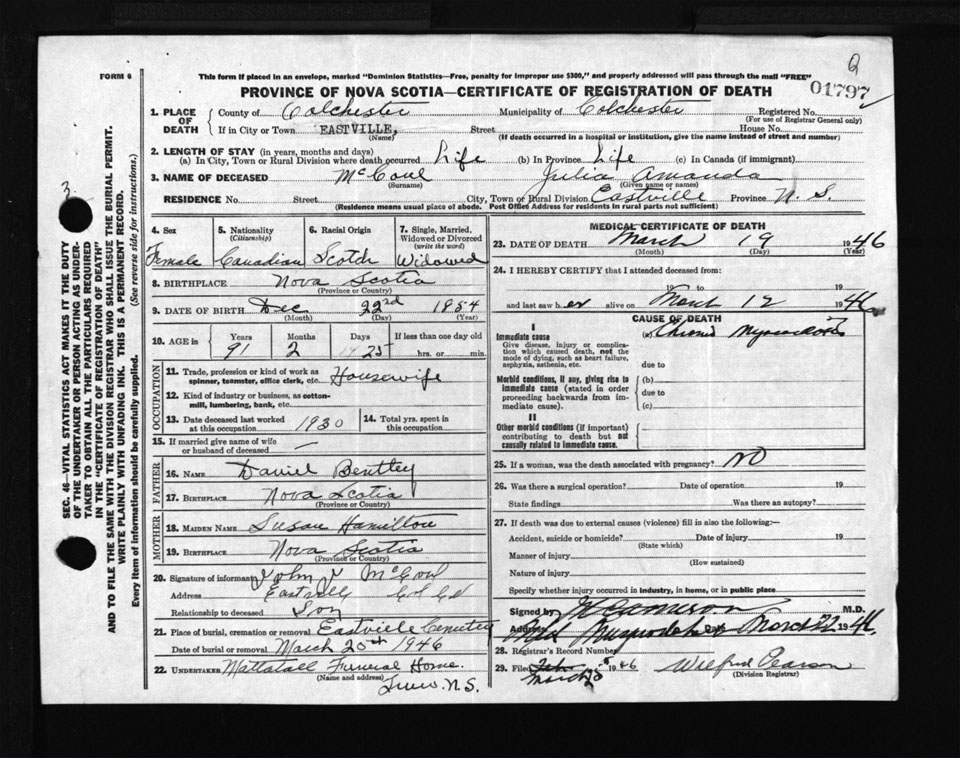 FORM 6
This form if placed in an envelope, marked "Dominion Statistics—Free, penalty for improper use $300," and properly addressed will pass through the mail "FREE"
01797
PROVINCE OF NOVA SCOTIA—CERTIFICATE OF REGISTRATION OF DEATH
1. PLACE OF DEATH County of Colchester Municipality of Colchester Registered No.
(For use of Registrar General only)
If in City or Town EASTVILLE, Street House No.
(Name) (If death occurred in a hospital or institution, give the name instead of street and number)
2. LENGTH OF STAY (in years, months and days)
(a) In City, Town or Rural Division where death occurred Life (b) In Province Life (c) In Canada (if immigrant)
3. NAME OF DECEASED McCoul Julia Amanda
(Surname) (Given name or names)
RESIDENCE No. Street City, Town or Rural Division Eastville Province N.S.
(Residence means usual place of abode. Post Office Address for residents in rural parts not sufficient)
4. Sex 5. Nationality (Citizenship) 6. Racial Origin 7. Single, Married, Widowed or Divorced (write the word)
Female Canadian Scotch Widowed
8. BIRTHPLACE Nova Scotia
(Province or Country)
9. DATE OF BIRTH Dec 22nd 1854
(Month) (Day) (Year)
10. AGE in Years Months Days If less than one day
91 2 25 hrs. or min.
OCCUPATION
11. Trade, profession or kind of work as spinner, teamster, office clerk, etc. Housewife
12. Kind of industry or business, as cotton-mill, lumbering, bank, etc.
13. Date deceased last worked at this occupation 1930 14. Total yrs. spent in this occupation
15. If married give name of wife or husband of deceased —
FATHER
16. NAME Daniel Bentley
17. BIRTHPLACE Nova Scotia
(Province or Country)
MOTHER
18. MAIDEN NAME Susan Hamilton
19. BIRTHPLACE Nova Scotia
(Province or Country)
20. Signature of informant John McCoul
Address Eastville Col Co
Relationship to deceased Son
21. Place of burial, cremation or removal Eastville Cemetery
Date of burial or removal March 20th 1946
22. UNDERTAKER Mattatall Funeral Home.
(Name and address)
Truro N.S.
MEDICAL CERTIFICATE OF DEATH
23. DATE OF DEATH March 19 1946
(Month) (Day) (Year)
24. I HEREBY CERTIFY that I attended deceased from:
19 to 19
and last saw her alive on March 12 1946
CAUSE OF DEATH
I
Immediate cause (a) Chronic
Give disease, injury or complication which caused death, not the mode of dying, such as heart failure, asphyxia, asthenia, etc.
due to
Morbid conditions, if any, giving rise to immediate cause (stated in order proceeding backwards from immediate cause).
(b)
due to
(c)
II
Other morbid conditions (if important) contributing to death but not causally related to immediate cause.
25. If a woman, was the death associated with pregnancy? NO
26. Was there a surgical operation? Date of operation 19
State findings Was there an autopsy?
27. If death was due to external causes (violence) fill in also the following:—
Accident, suicide or homicide? Date of injury 19
(State which)
Manner of injury
(How sustained)
Nature of injury
Specify whether injury occurred in industry, in home, or in public place
Signed by M.D.
Address Date March 22 1946
28. Registrar's Record Number
29. Filed March 1946 Wilfred Pearson
(Division Registrar)
SEC. 46—VITAL STATISTICS ACT MAKES IT THE DUTY
OF THE UNDERTAKER OR PERSON ACTING AS UNDER-
TAKER TO OBTAIN ALL THE PARTICULARS REQUIRED
IN THE "CERTIFICATE OF REGISTRATION OF DEATH"
AND TO FILE THE SAME WITH THE DIVISION REGISTRAR WHO SHALL ISSUE THE BURIAL PERMIT.
WRITE PLAINLY WITH UNFADING INK. THIS IS A PERMANENT RECORD.
Every item of information should be carefully supplied. (See reverse side for instructions.)